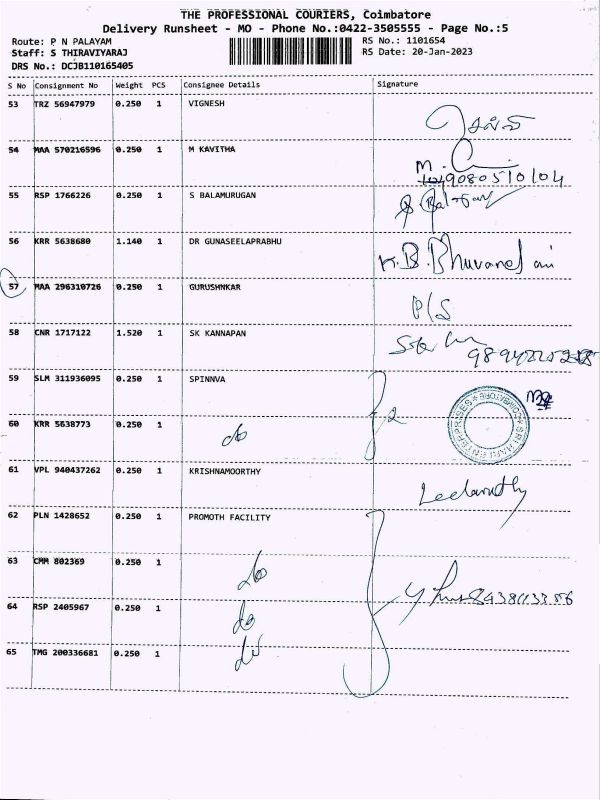 THE PROFESSIONAL COURIERS, Coimbatore
Delivery Runsheet - MO - Phone No.:0422-3505555 - Page No.:5
Route: P N PALAYAM
Staff: S THIRAVIYARAJ
DRS No.: DCJB110165405
RS No.: 1101654
RS Date: 20-Jan-2023
S No Consignment No Weight PCS Consignee Details Signature
53 TRZ 56947979 0.250 1 VIGNESH
54 MAA 570216596 0.250 1 M KAVITHA
9080510104
55 RSP 1766226 0.250 1 S BALAMURUGAN
56 KRR 5638680 1.140 1 DR GUNASEELAPRABHU K.B.Bhuvaneswari
57 MAA 296310726 0.250 1 GURUSHNKAR P/S
58 CNR 1717122 1.520 1 SK KANNAPAN
59 SLM 311936095 0.250 1 SPINNVA
60 KRR 5638773 0.250 1 do 2
SRI HARI ENTERPRISES * COIMBATORE *
61 VPL 940437262 0.250 1 KRISHNAMOORTHY
62 PLN 1428652 0.250 1 PROMOTH FACILITY
63 CMM 802369 0.250 1 do
64 RSP 2405967 0.250 1 do
65 TMG 200336681 0.250 1 do